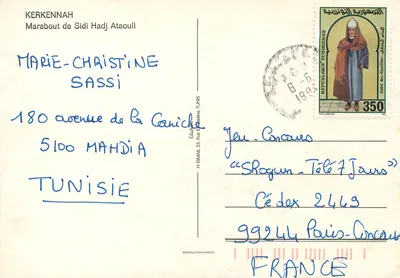 KERKENNAH
Marabout de Sidi Hadj Ataouli
MARIE-CHRISTINE
SASSI
180 avenue de la Corniche
5100 MAHDIA
TUNISIE
REPUBLIQUE TUNISIENNE
350
6
Jeu-Concours
"Shogun-Télé 7 Jours"
Cédex 2449
99244 Paris-Concours
FRANCE
REPRODUCTION INTERDITE